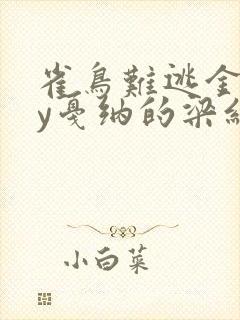 雀鳥難逃金
y戛纳的梁
小白菜